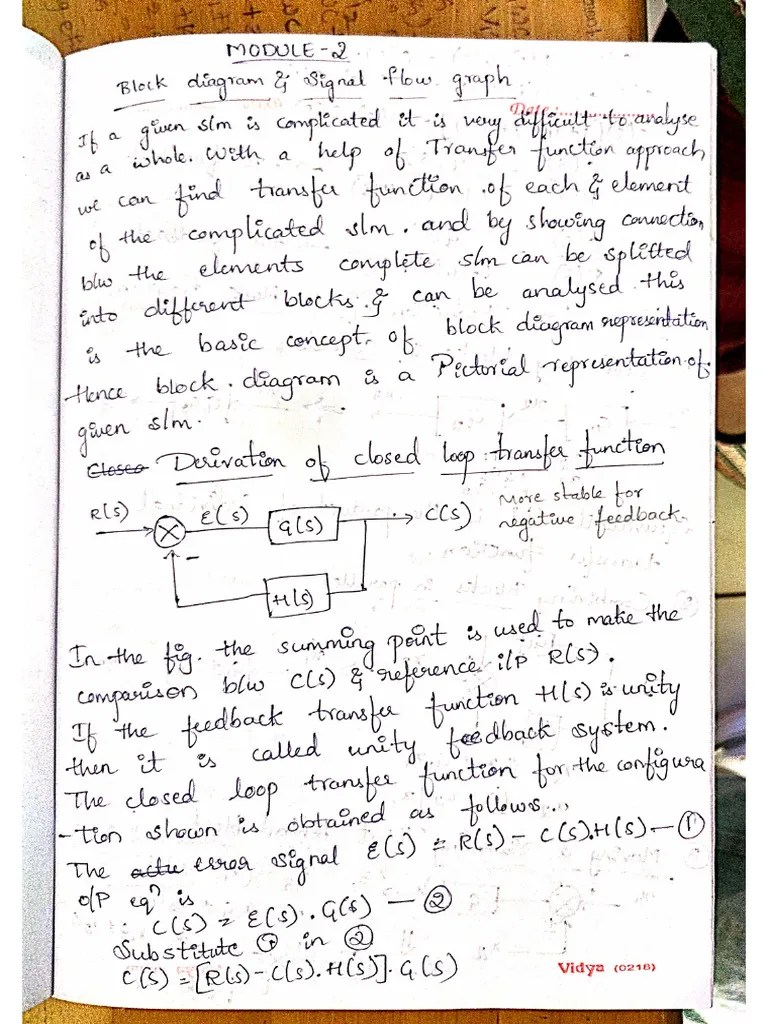 MODULE-2
Block diagram & Signal flow graph
Date:
If a given s/m is complicated it is very difficult to analyse
as a whole. With a help of Transfer function approach
we can find transfer function of each & element
of the complicated s/m. and by showing connection
b/w the elements complete s/m can be splitted
into different blocks. & can be analysed this
is the basic concept. of block diagram representation
Hence block diagram is a Pictorial representation of
given s/m.
Closeo Derivation of closed loop transfer function
R(s) E(s) G(s) C(s) More stable for
negative feedback.
-
H(s)
In the fig. the summing point is used to make the
comparison b/w C(s) & reference i/p R(s).
If the feedback transfer function H(s) is unity
then it is called unity feedback system.
The closed loop transfer function for the configura
-tion shown is obtained as follows..
The actu error signal E(s) = R(s) - C(s).H(s) — ①
o/p eqⁿ is
C(s) = E(s) . G(s) — ②
Substitute ① in ②
C(s) = [R(s) - C(s).H(s)] . G(s)
Vidya (0218)